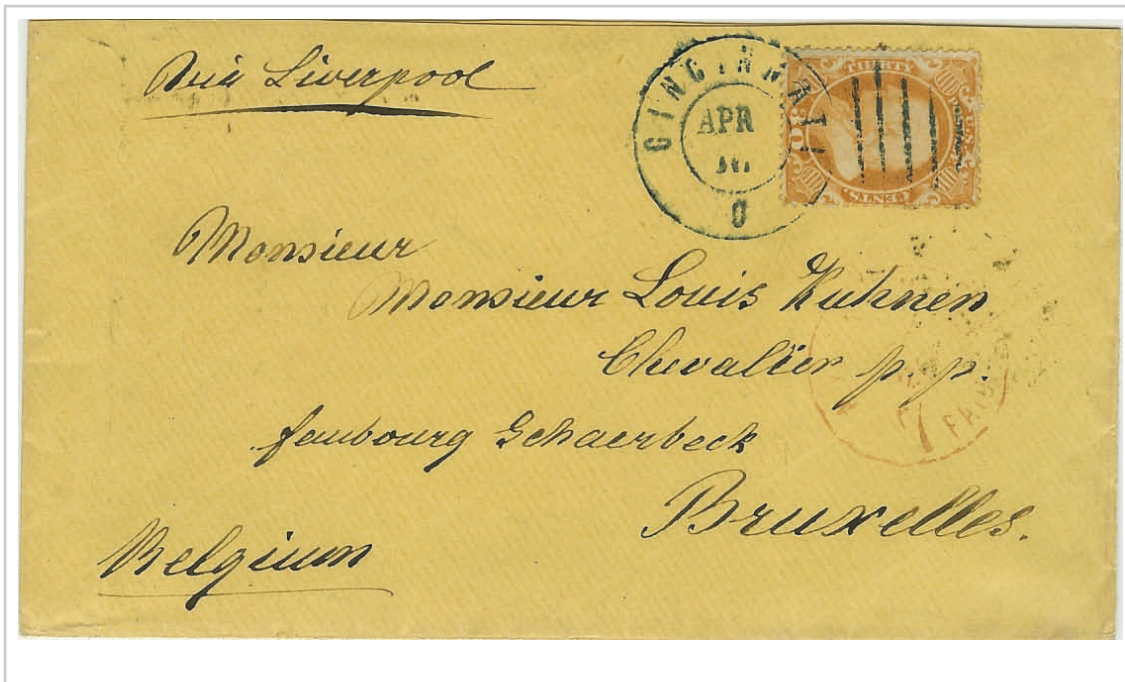 Via Liverpool
CINCINNATI
APR
O
THIRTY
30
U.S.
CENTS.
Monsieur
Monsieur Louis Kuhnen
Chevalier p.p.
faubourg Schaerbeck
Bruxelles.
Belgium
PAID